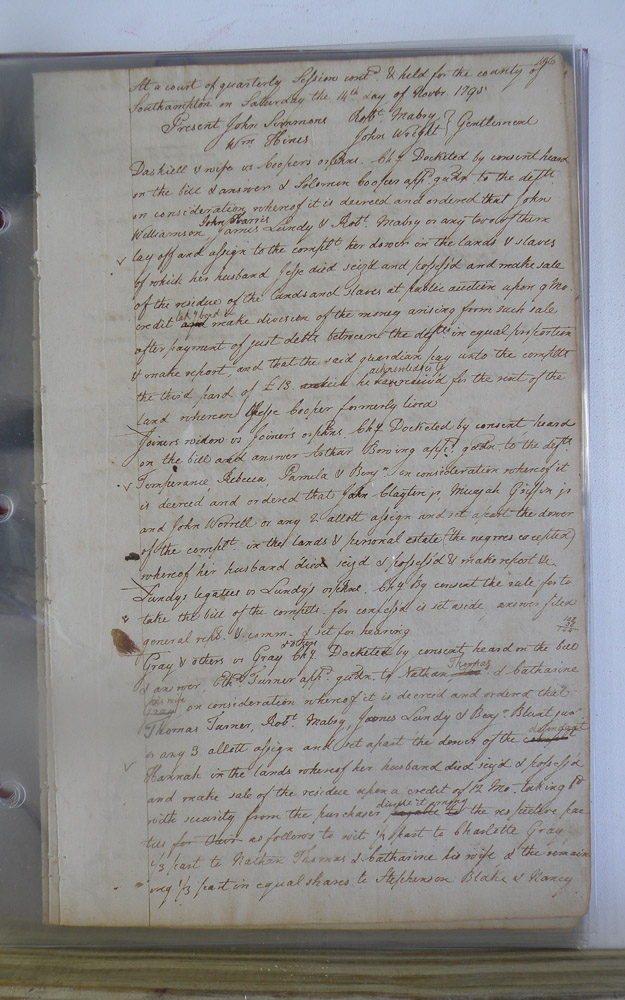 196
At a court of quarterly Session cont.d & held for the county of
Southampton on Satturday the 14th day of Novbr 1795
Present John Simmons Robt. Mabry } Gentlemend
Wm Hines John Wright
Dashiell & wife vs Coopers orphns. Chy Docketed by consent heard
on the bill & answer & Solomon Cooper app.d gu.dn to the defts.
on consideration whereof it is decreed and ordered that John
Williamson John Barris James Lundy & Robt. Mabry or any two of them
lay off and assign to the complt. her dower in the lands & slaves
of which her husband Jesse died seiz'd and possess'd and make sale
of the residue of the lands and slaves at public auction upon 9 Mo.
credit make division of the money arising from such sale
after payment of just debts between the defts. in equal proportion
& make report, and that the said guardian pay unto the complts
the third part of £13. he rceiv'd for the rent of the
land whereon Jesse Cooper formerly lived
Joiners widow vs Joiners orphns. Chy Docketed by consent heard
on the bill and answer app.d gdn. to the defts.
Temperance Rebecca, Pamela & Benjn. on consideration whereof it
is decreed and ordered that John Clayton jr, Griffin jr
and John Worrell or any 2 allott assign and set apart the dower
of the complt. in the lands & personal estate (the negroes excepted)
whereof her husband died seiz'd & possess'd & make report &c
Lundys legatees vs Lundy's orphns. Chy By consent the rule for to
take the bill of the complts. for confess'd is set aside, answer filed
general repn. & comm. & set for hearing
Gray & others vs Gray & others Chy. Docketed by consent heard on the bill
& answer, Turner app.d gu.dn. to Nathan Thomas & Catharine
his wife on consideration whereof it is decreed and ordered that
Thomas Turner, Robt. Mabry, James Lundy & Benjn. Blunt junr
or any 3 allott assign and set apart the dower of the
Hannah in the lands whereof her husband died seiz'd & possess'd
and make sale of the residue upon a credit of 12 Mo. taking bd
with security from the purchaser payable to the respective par
ties for their as follows to wit part to Charlotte Gray
1/3 part to Nathan Thomas & Catharine his wife & the remain
ing 1/3 part in equal shares to Stephenson Blake & Nancy